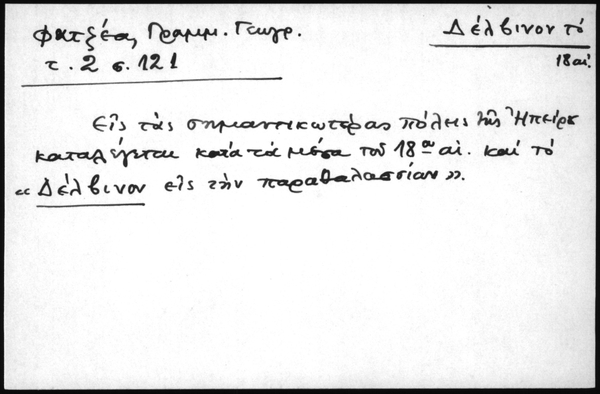 Φατζέα, Γραμμ. Γεωγρ.
τ. 2 σ. 121
Δέλβινον τό
18 αἰ.
Εἰς τὰς σημαντικωτέρας πόλεις τῆς Ἠπείρου
καταλέγεται κατὰ τὰ μέσα τοῦ 18ου αἰ. καὶ τὸ
«Δέλβινον εἰς τὴν παραθαλασσίαν».